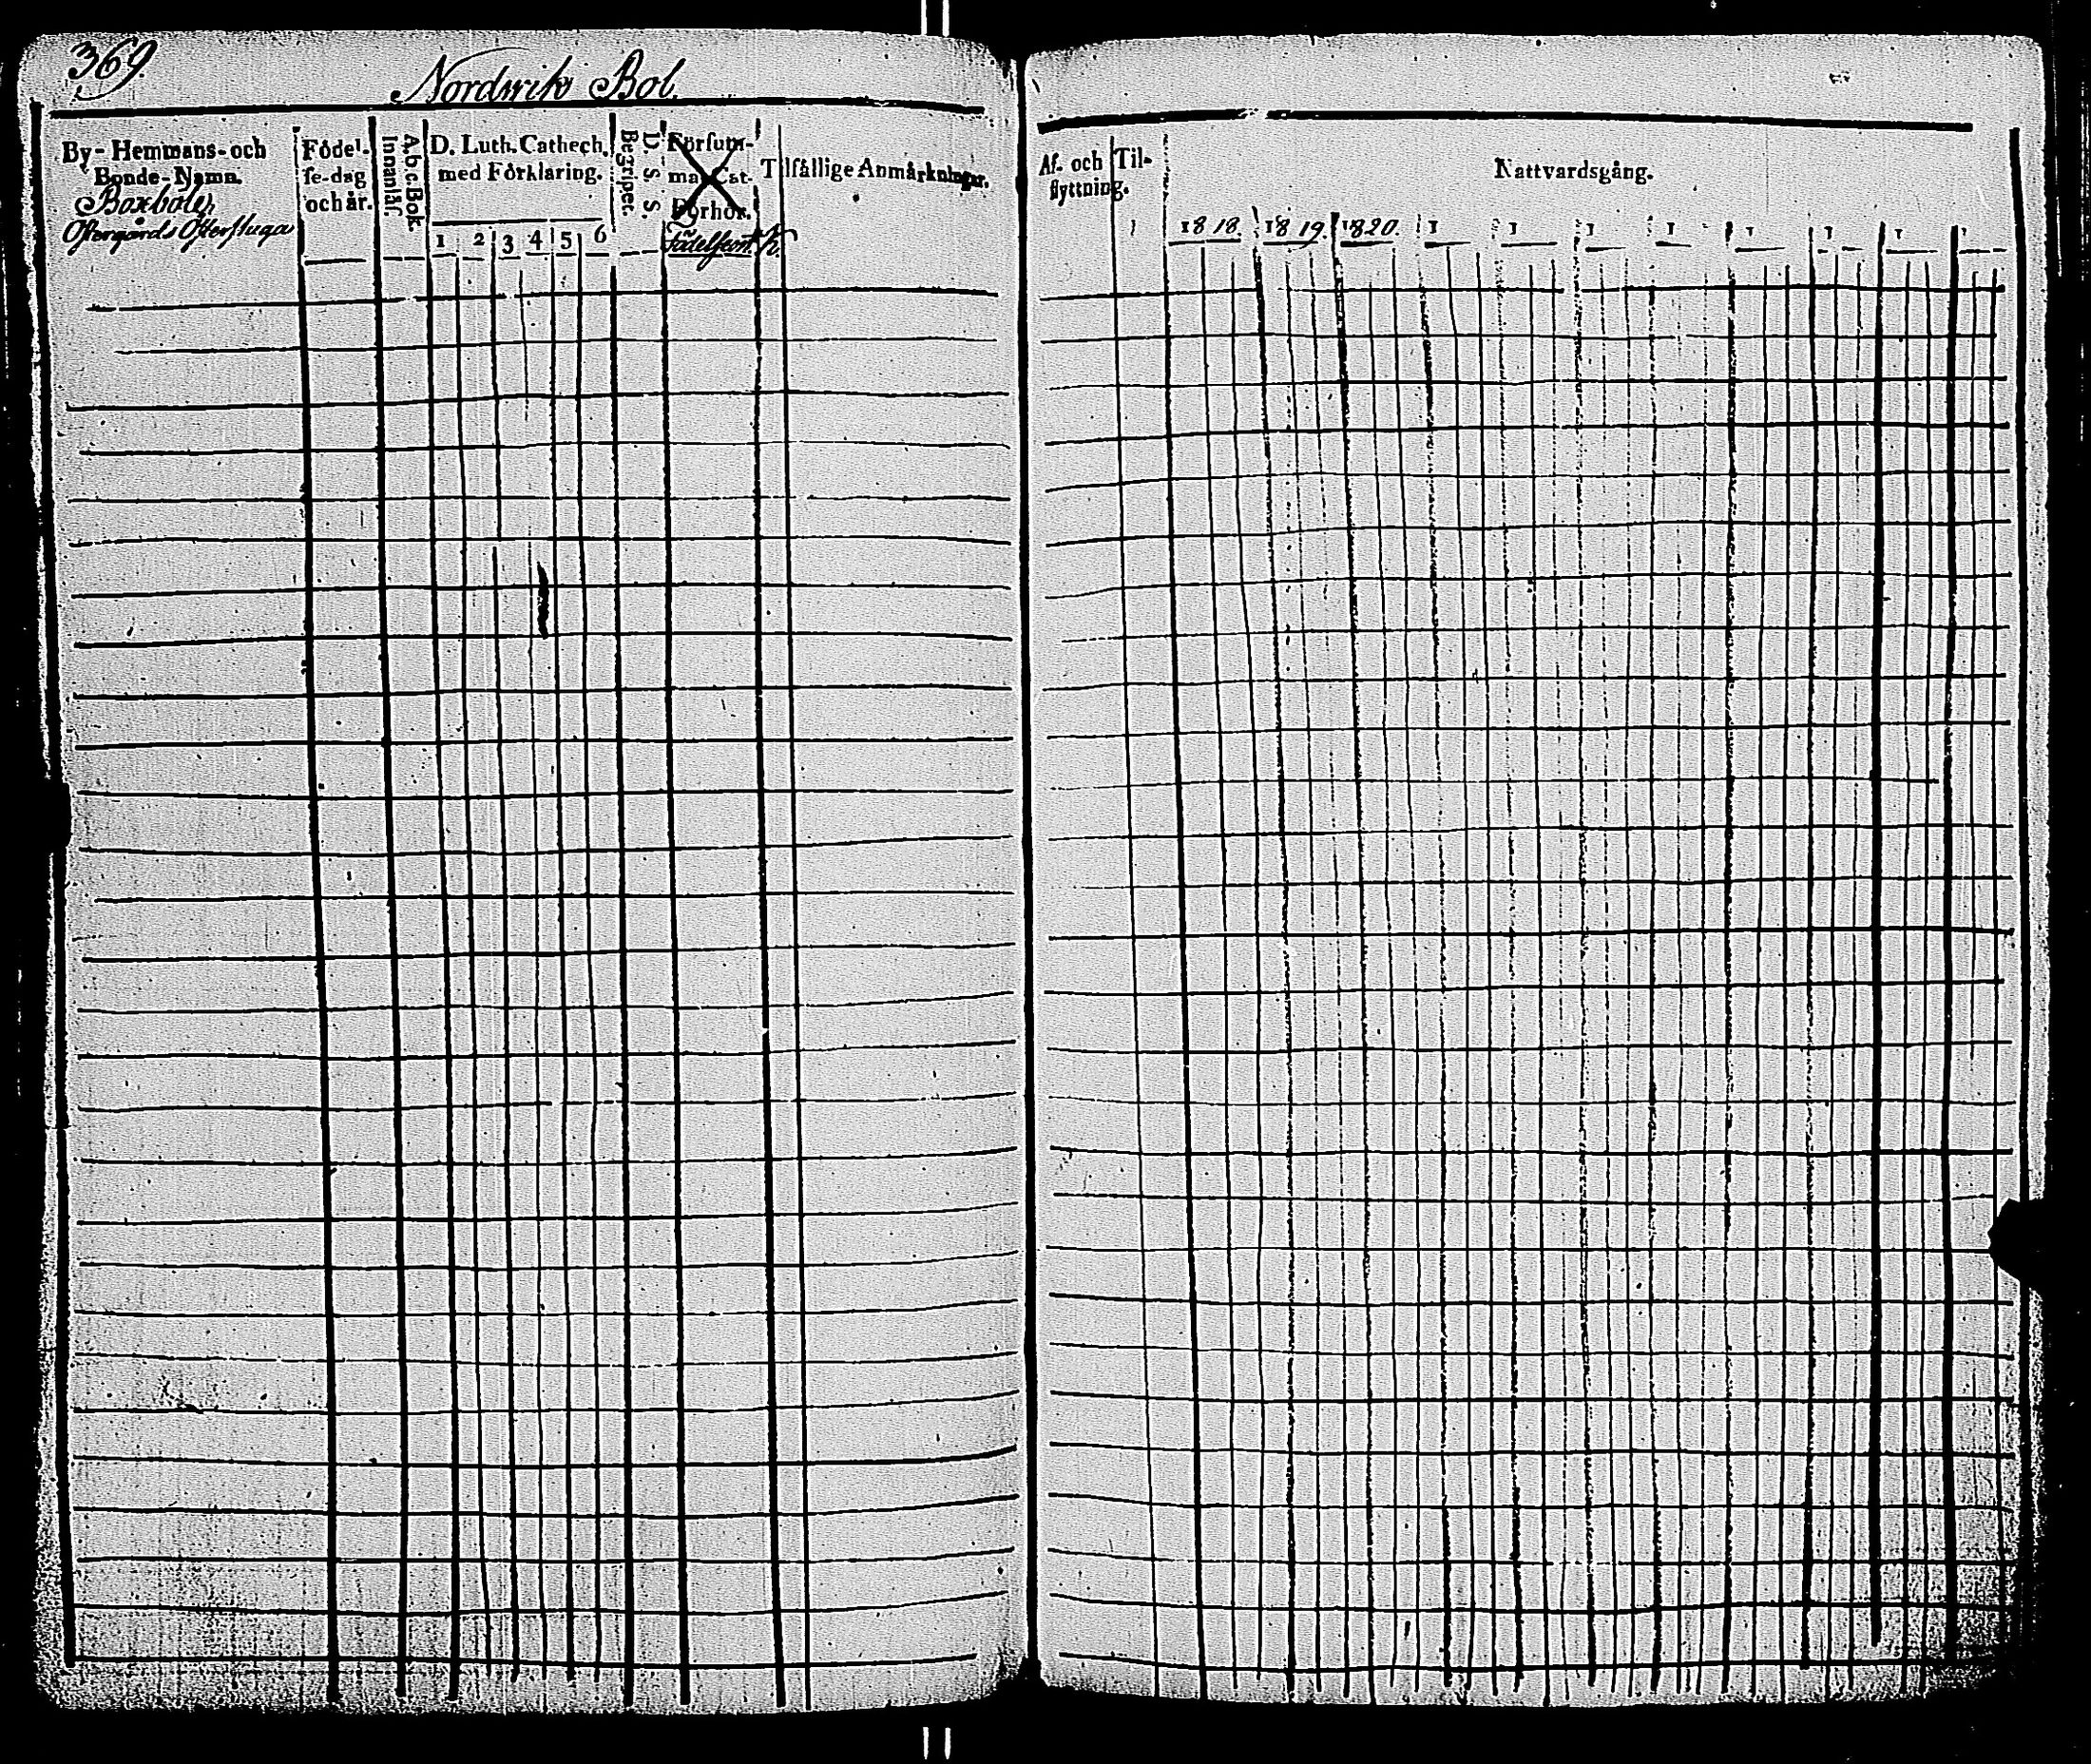 369.
Nordwiks Bol.
By- Hemmans- och
Bonde-Namn.
Boxböle,
Östergårds Österstuga
Födel-
se-dag
och år.
A.b.c.Bok.
Innanlär.
D. Luth. Cathech.
med Förklaring.
1 2 3 4 5 6
D. S. S.
Begriper.
Försum-
ma Cat-
Förhör.
Födelseort.
Tilfällige Anmärkningar.
Af- och Til-
flyttning.
Nattvardsgång.
1818. 1819. 1820. 1 1 1 1 1 1 1 1